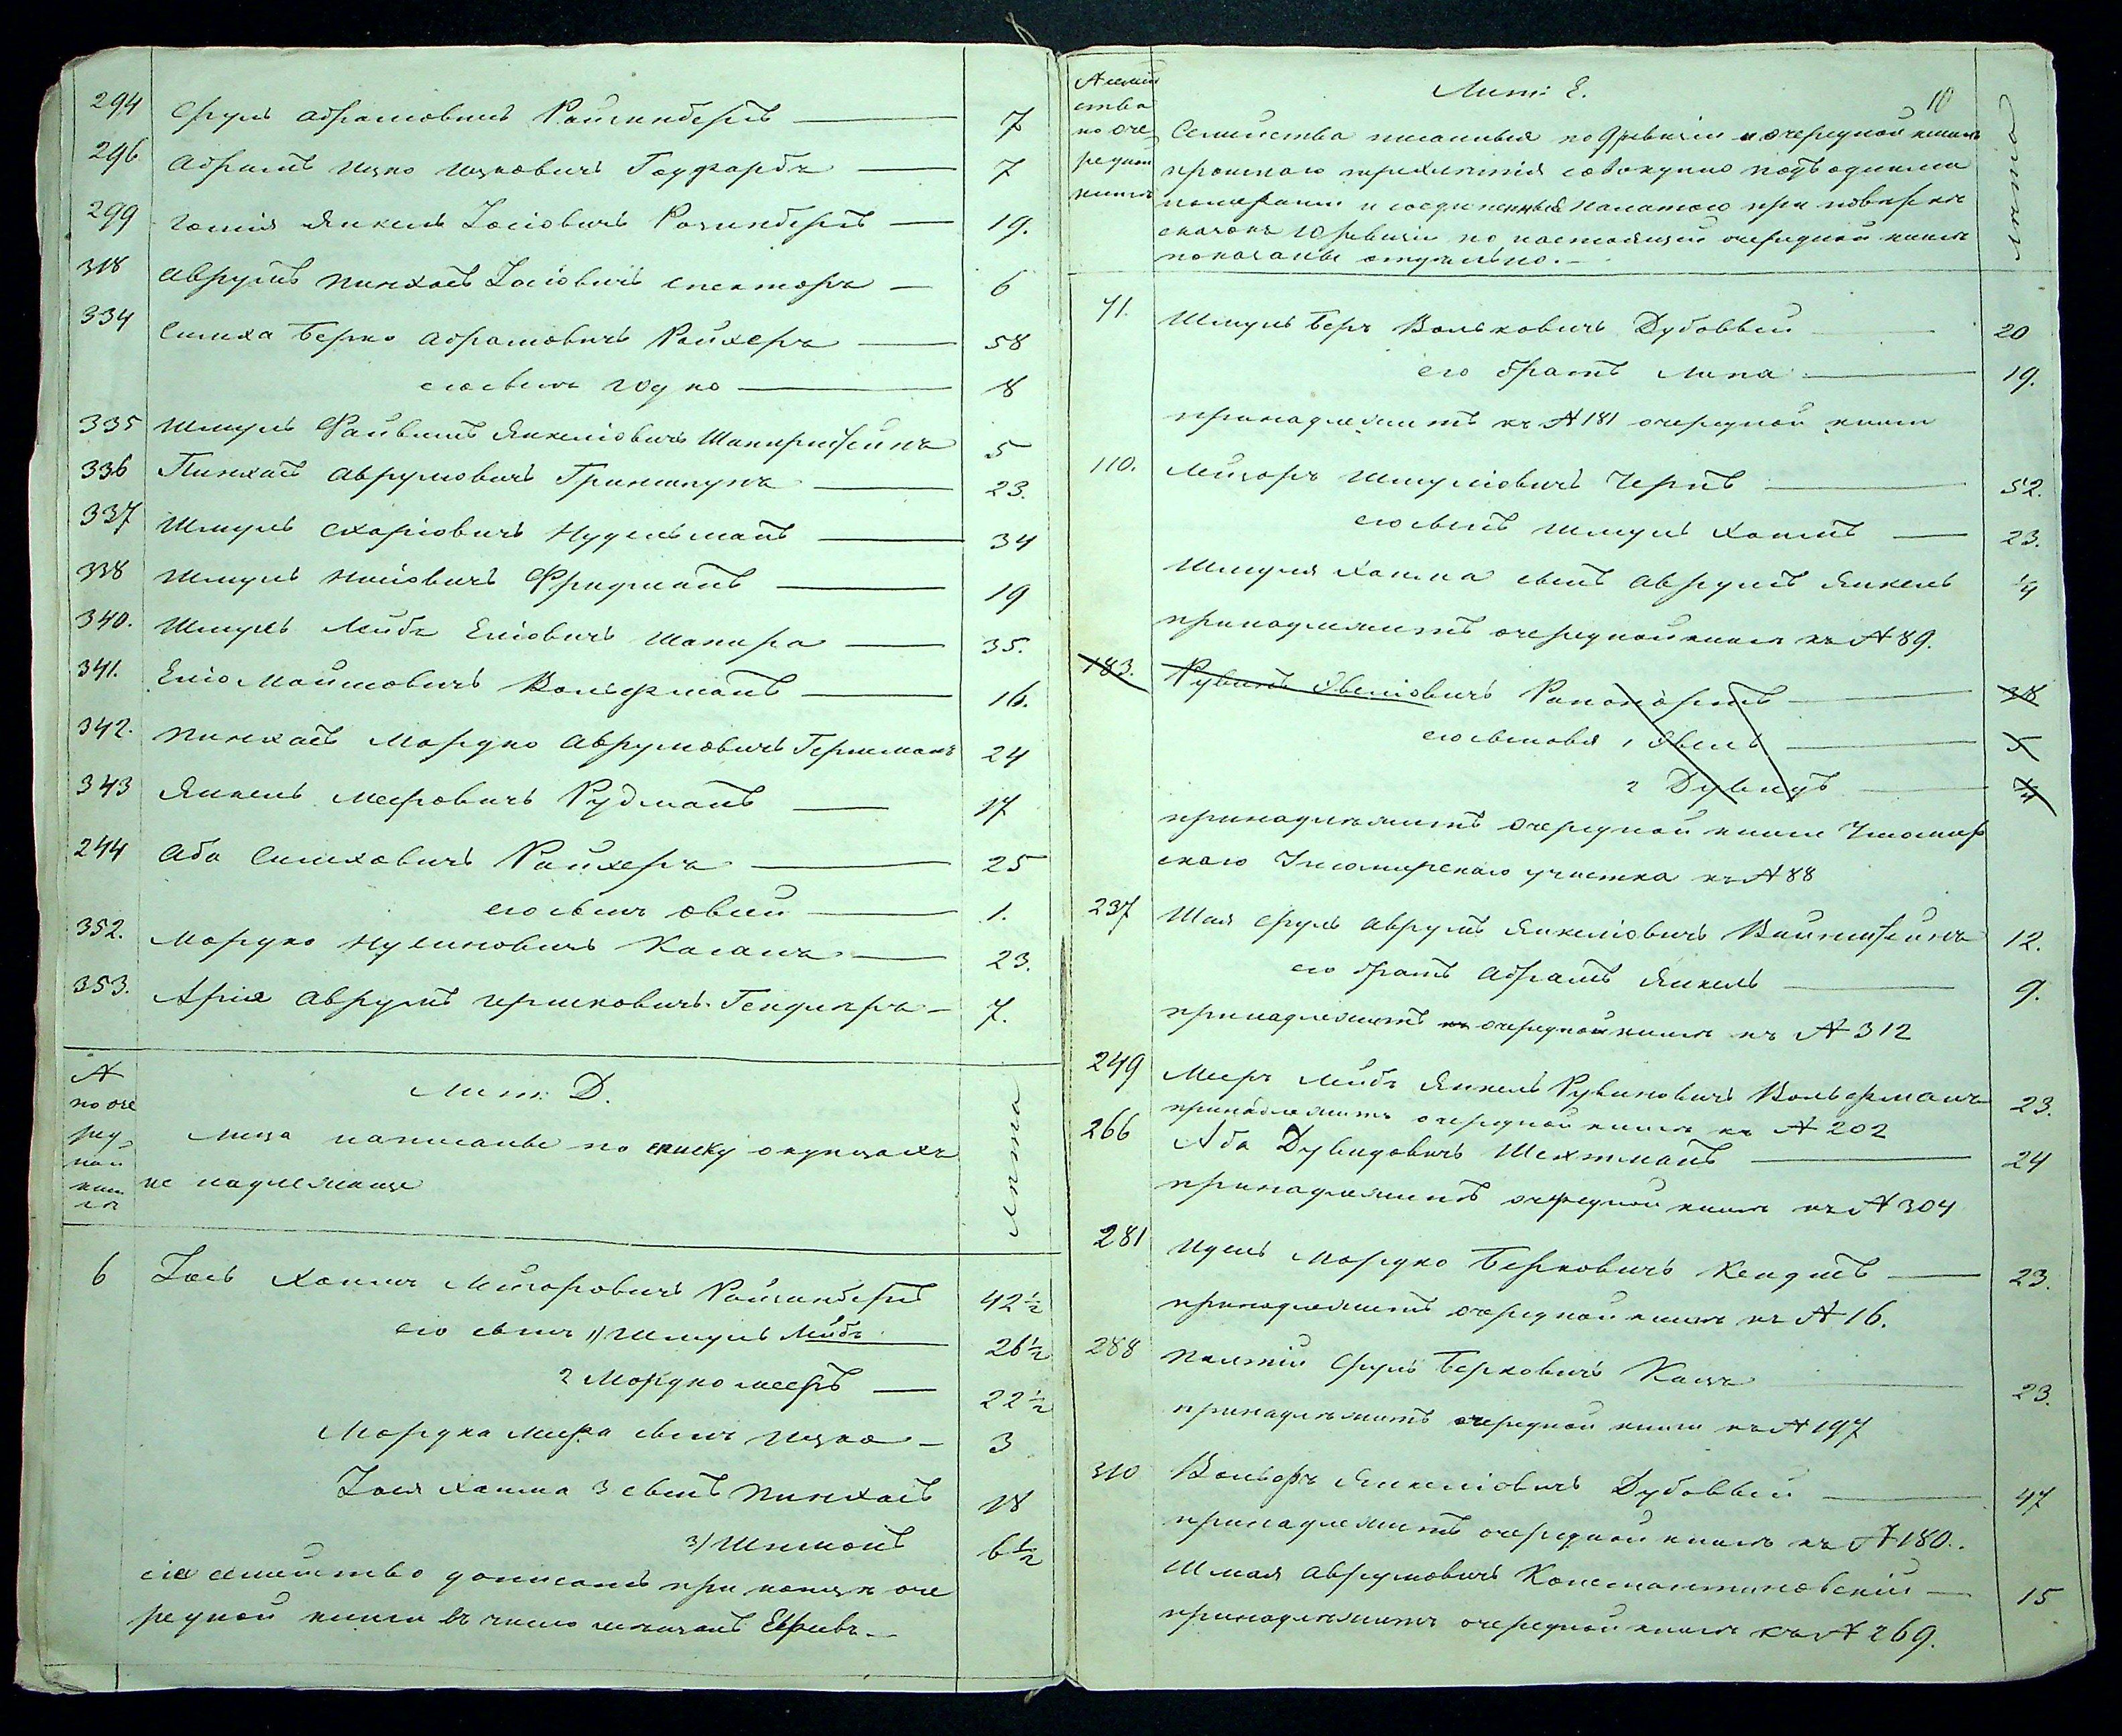 294 Сруль Абрамовичъ Райзинбергъ — 7
296 Абрамъ Ицко Ицковичъ Гоуфарбъ — 7
299 Янкель Іосіовичъ Розинбергъ — 19.
318 Аврумъ Пинхасъ Іосіовичъ Спекторъ — 6
334 Симха Берко Абрамовичъ Райхеръ — 58
его сынъ Юдко — 8
335 Шмуль Файвишъ Янкеліовичъ 5
336 Пинхасъ Аврумовичъ Гриншпунъ — 23.
337 Шмуль Нудельманъ — 34
338 Шмуль Фридманъ — 19
340. Шмуль Лейбъ Еліовичъ Шапира — 35.
341. Еліо Мошковичъ Вольфманъ — 16.
342. Пинхасъ Мордко Аврумовичъ Гершманъ 24
343 Янкель Мееровичъ Рудманъ — 17
244 Аба Симховичъ Райхеръ — 25
его сынъ Овсій — 1.
352. Мордко Казанъ — 23.
353. Арія Аврумъ Гершковичъ Гендлеръ — 7.
№ по очередной книгѣ
Лит: Д.
Лѣта
Лица написаны по списку о купцахъ
не надлежаще
6 Іось Хаимъ Лейзоровичъ Райзинбергъ 42 1/2
его сынъ 1) Шмуль Лейбъ 26 1/2
2 Мордко Мееръ — 22 1/2
Мордка Меера сынъ Ицко — 3
Іося Хаима 3 сынъ Пинхасъ 18
3) Шимонъ 6 1/2
сіе семейство дописать при концѣ оче
редной книги въ число мѣщанъ Евреевъ. —
№ семейства по очередной книгѣ
Лит: Е.
10
Лѣта
Семейства писанныя по 9 ревизіи и очередной книгѣ
прошлаго трехлѣтія совокупно подъ одними
номерами и соединенныя палатою при повѣркѣ
сказокъ 10 ревизіи по настоящей очередной книгѣ
показаны отдѣльно. —
71. Шмуль Беръ Вольковичъ Дубовый — 20
его братъ Липа — 19.
принадлежитъ къ № 181 очередной книги
110. Лейзоръ Шмуліовичъ Чернъ — 52.
его сынъ Шмуль Хаимъ — 23.
Шмуля Хаима сынъ Аврумъ Янкель 1/4
принадлежитъ очередной книгѣ къ № 89.
183. Рувинъ Овсіовичъ Рапопортъ — 38
его сыновья 1 Овсей — 5
2 Дувидъ —
принадлежитъ очередной книги Житомир
скаго Житомирскаго участка къ № 88
237 Шая Сруль Аврумъ Янкеліовичъ Вайнштейнъ 12.
его братъ Абрамъ Янкель — 9.
принадлежитъ очередной книгѣ къ № 312
249 Мееръ Лейбъ Янкель Рувиновичъ Вольфманъ 23.
принадлежитъ очередной книгѣ къ № 202
266 Аба Дувидовичъ Шехтманъ — 24
принадлежитъ очередной книгѣ къ № 304
281 Идель Мордко Берковичъ — 23.
принадлежитъ очередной книгѣ къ № 16.
288 Сруль Берковичъ Кацъ — 23.
принадлежитъ очередной книги къ № 197
310 Вольфъ Янкеліовичъ Дубовый — 47
принадлежитъ очередной книгѣ къ № 180.
Шмая Аврумовичъ Константиновскій — 15
принадлежитъ очередной книгѣ къ № 269.